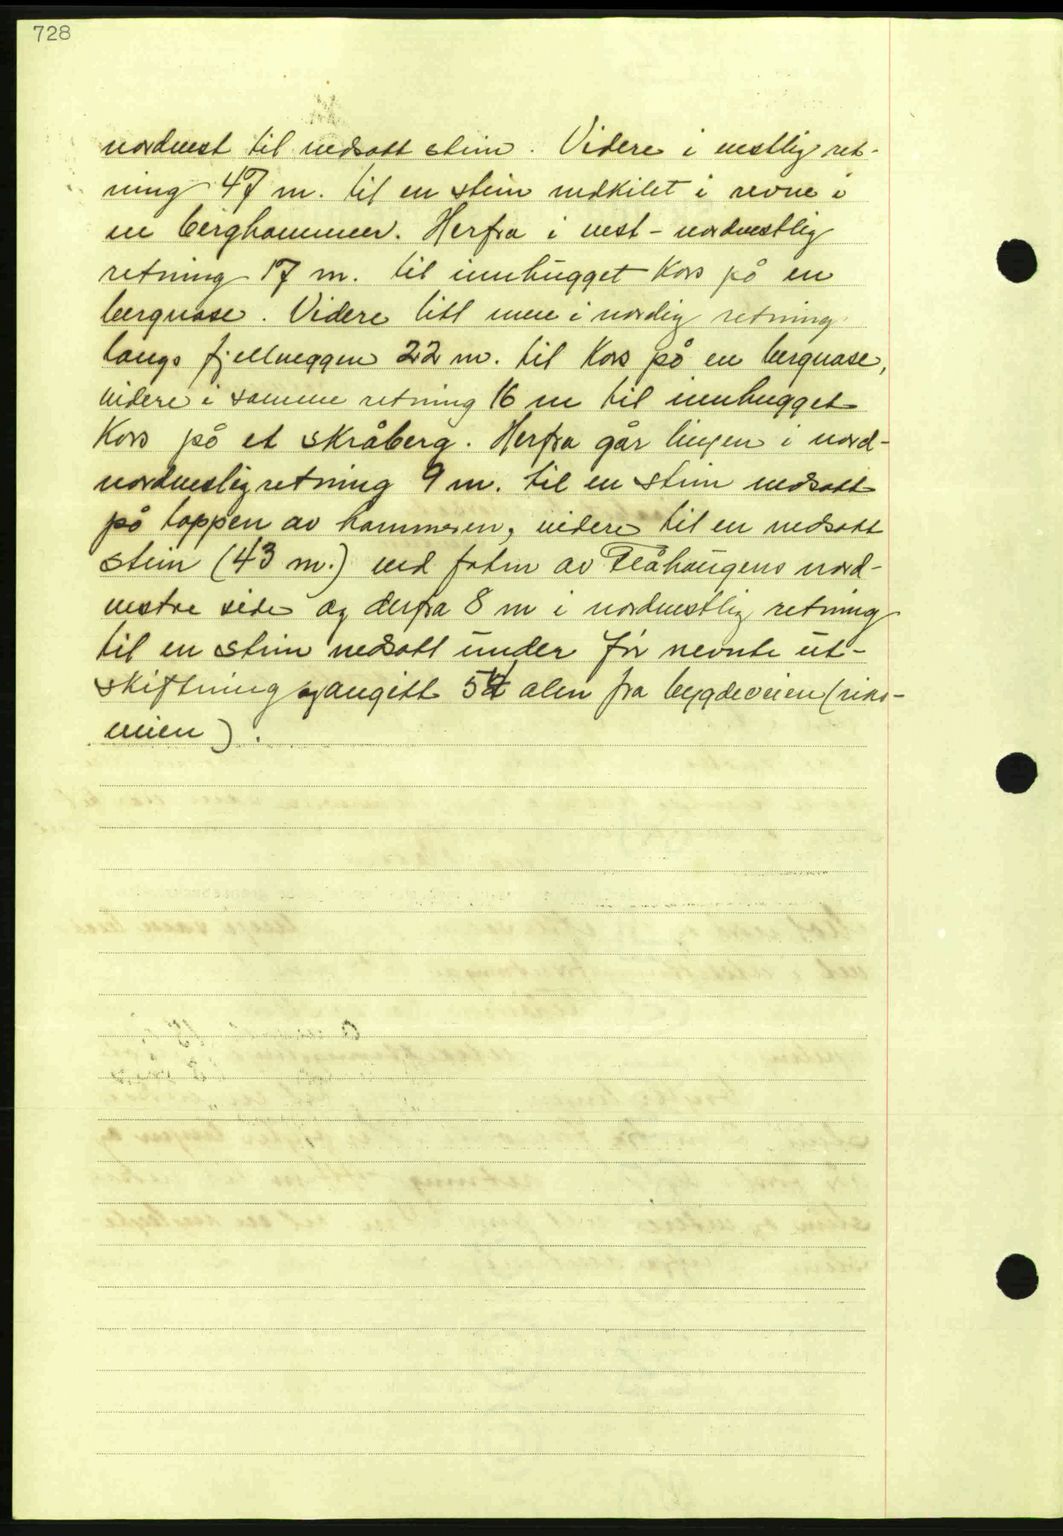 728
nordvest til nedsatt stein. Videre i vestlig ret-
ning 47 m. til en stein nedkilet i revne i
en berghammer. Herfra i vest-nordvestlig
retning 17 m. til innhugget Kors på en
bergnase. Videre litt mere i nordlig retning
langs fjellveggen 22 m. til Kors på en bergnase,
videre i samme retning 16 m til innhugget
Kors på et skråberg. Herfra går linjen i nord-
nordvestlig retning 9 m. til en stein nedsatt
på toppen av hammeren, videre til en nedsatt
stein (43 m.) ved foten av Flåhaugens nord-
vestre side og derfra 8 m i nordvestlig retning
til en stein nedsatt under før nevnte ut-
skiftning og angitt alen fra bygdeveien (riks-
veien).